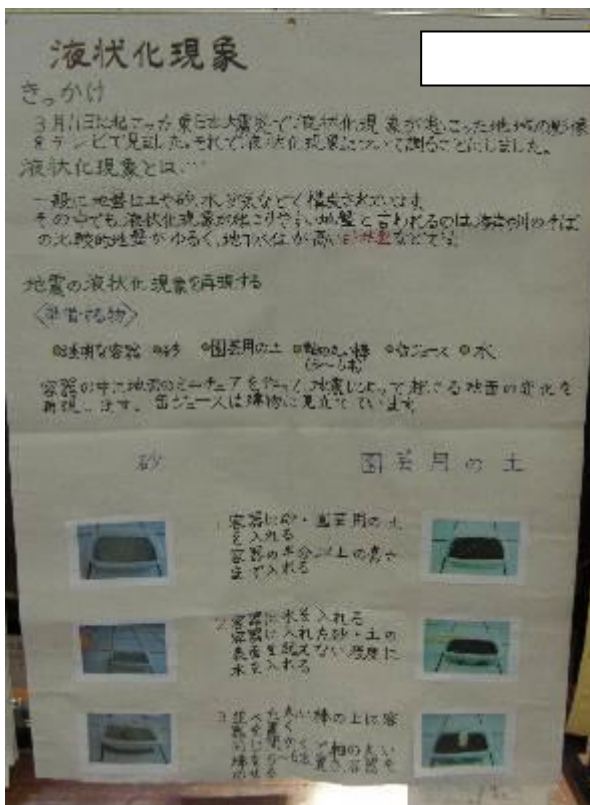 液状化現象
きっかけ
3月11日に起こった東日本大震災で液状化現象が起こった地域の影像
をテレビで見ました。それで液状化現象について調ることにしました。
液状化現象とは…
一般に地盤は土や砂、水、空気などで構成されています
その中でも、液状化現象が起こりやすい地盤と言われるのは海岸や川のそば
の比較的地盤がゆるく、地下水位が高い
などです
地震の液状化現象を再現する
〈準備する物〉
透明な容器 砂 園芸用の土 缶ジュース 水
容器の中に地面のミニチュアを作って、地震によって起こる地面の変化を
再現します。缶ジュースは建物に見立てています
砂 園芸用の土
1. 容器に砂・園芸用の土
を入れる
容器の半分以上の高さ
まで入れる
2. 容器に水を入れる
容器に入れた砂・土の
表面を超えない程度に
水を入れる
3. 並べた丸い棒の上に容
器を置く